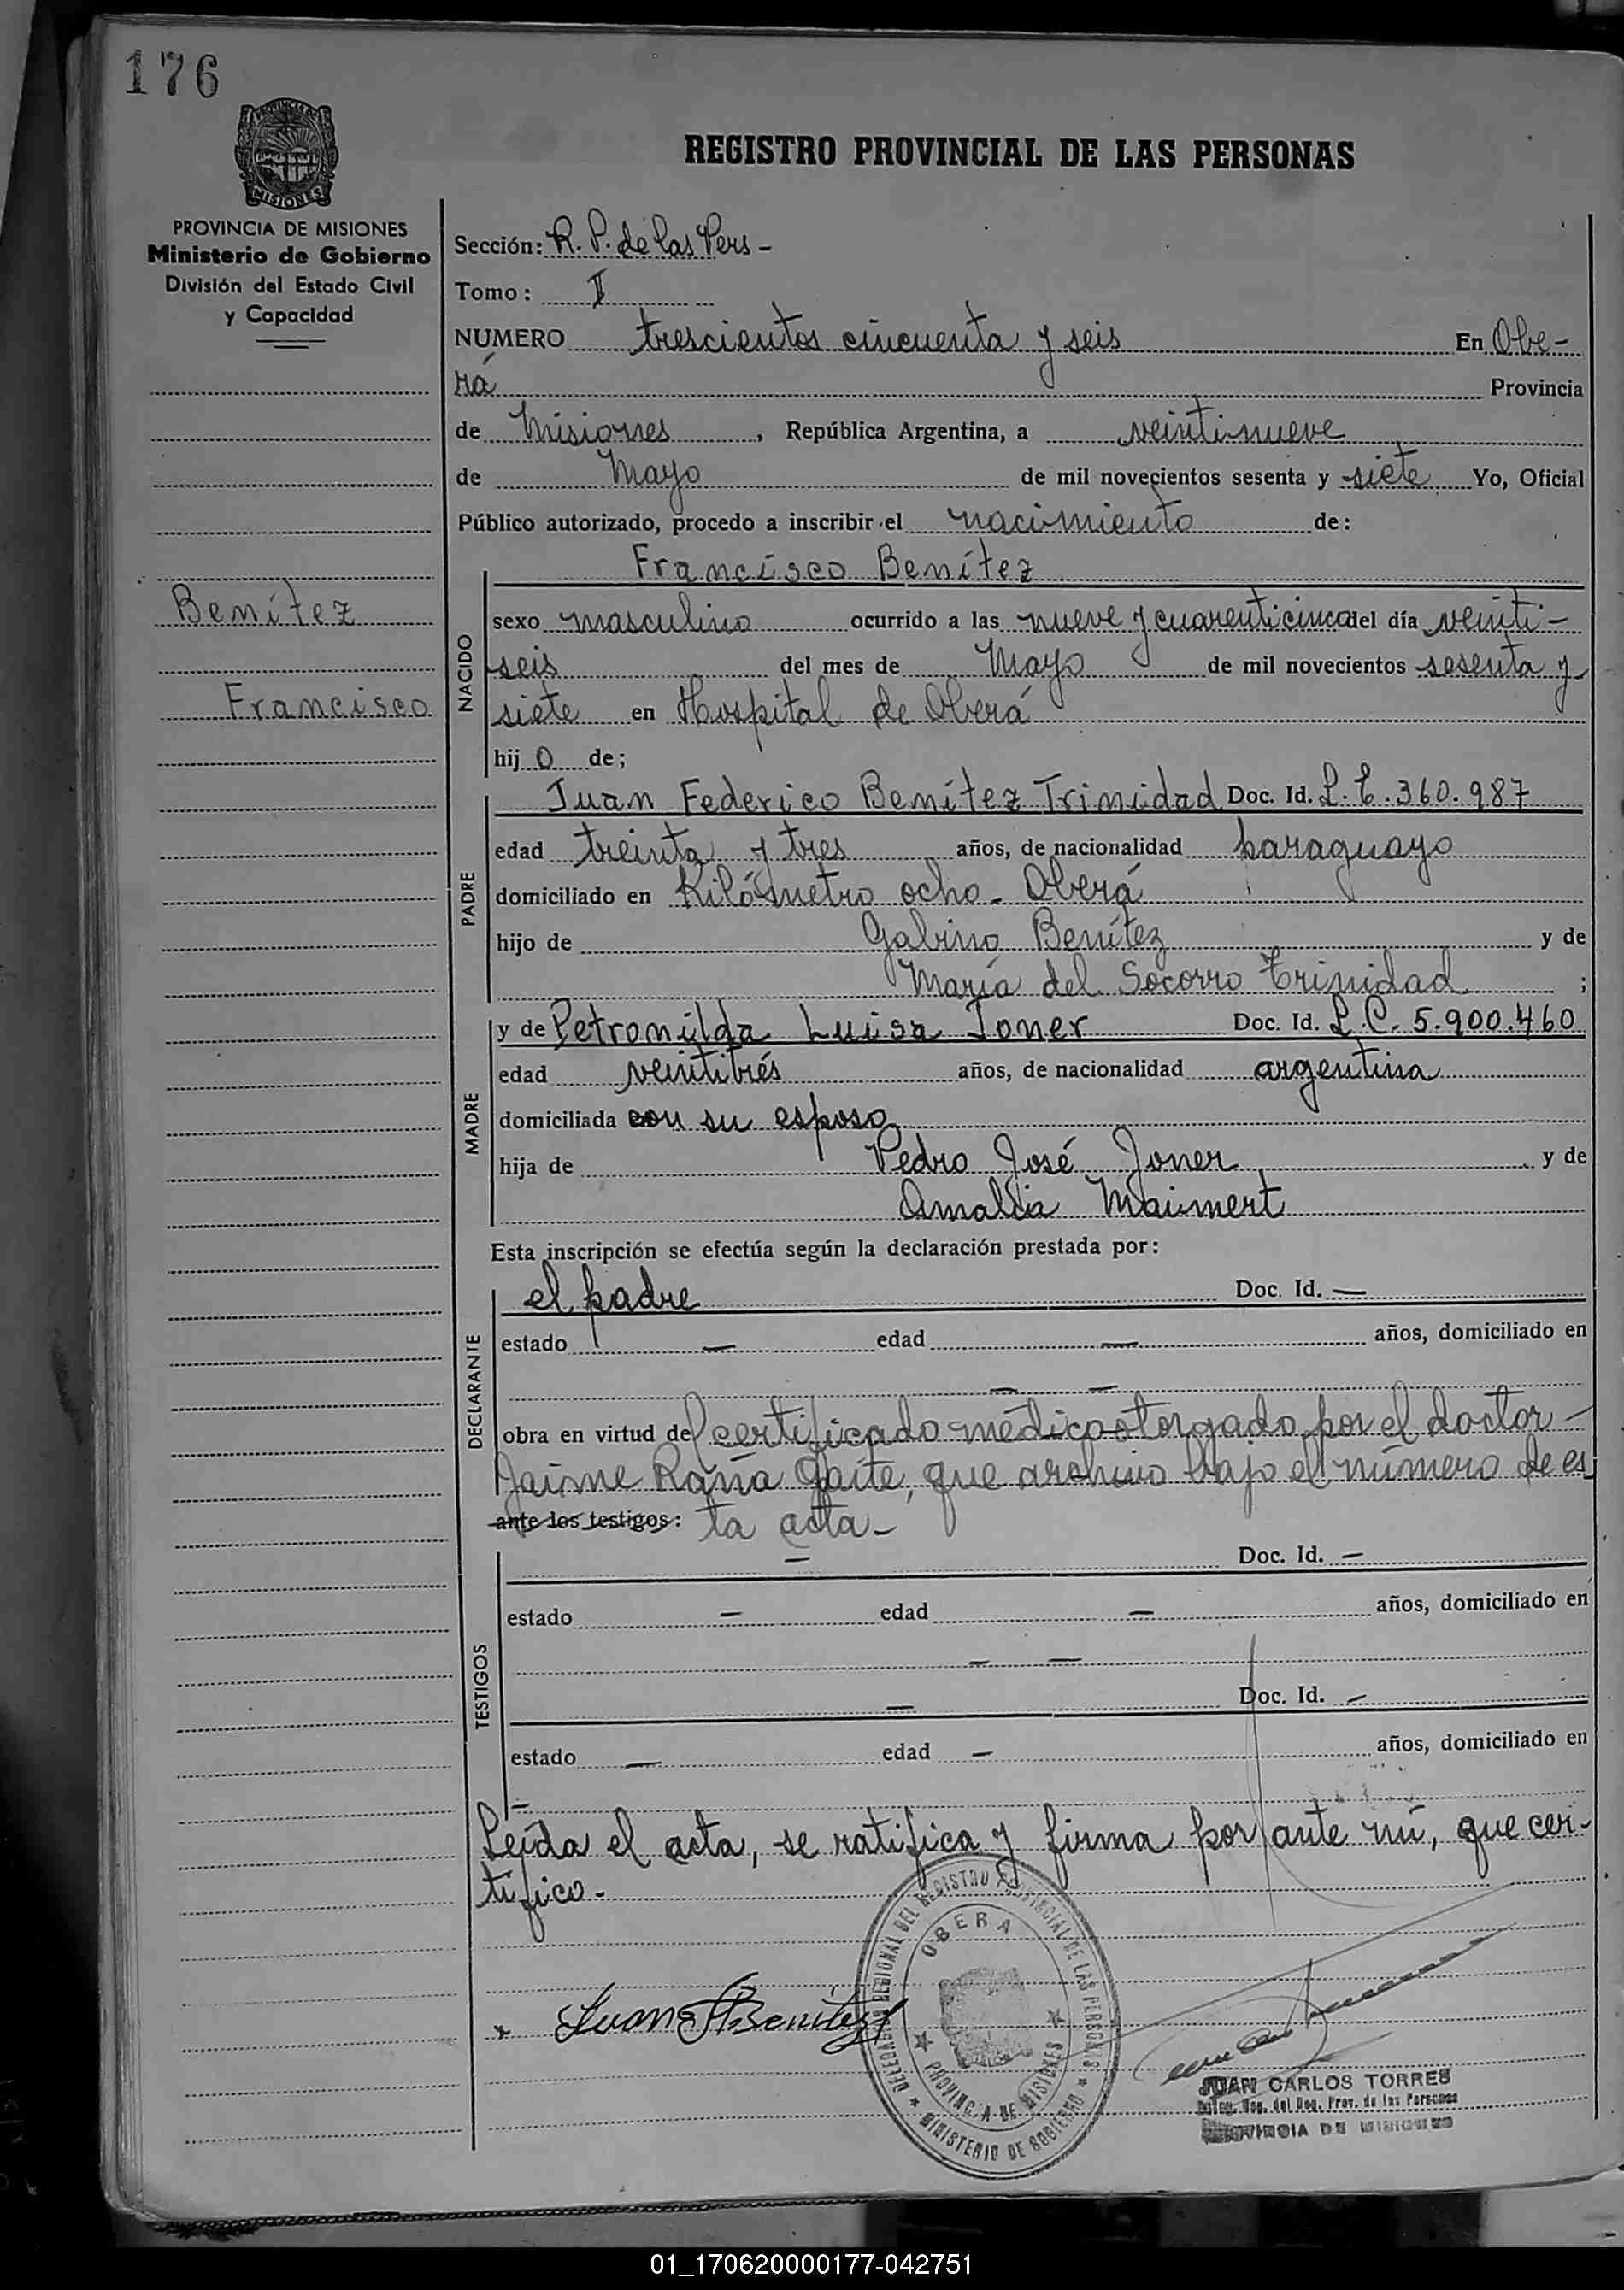 176
PROVINCIA DE
MISIONES
REGISTRO PROVINCIAL DE LAS PERSONAS
PROVINCIA DE MISIONES
Ministerio de Gobierno
División del Estado Civil
y Capacidad
Sección: R. P. de las Pers -
Tomo: II
NUMERO trescientos cincuenta y seis En Obe-
rá Provincia
de Misiones, República Argentina, a veintinueve
de Mayo de mil novecientos sesenta y siete Yo, Oficial
Público autorizado, procedo a inscribir el nacimiento de:
Francisco Benítez
Benítez
Francisco
NACIDO
sexo masculino ocurrido a las nueve y cuarenticinco del día veinti-
seis del mes de Mayo de mil novecientos sesenta y
siete en Hospital de Oberá
hij o de;
PADRE
Juan Federico Benítez Trinidad Doc. Id. L. E. 360.987
edad treinta y tres años, de nacionalidad paraguayo
domiciliado en Kilómetro ocho - Oberá
hijo de Gabino Benítez y de
María del Socorro Trinidad ;
MADRE
y de Petronilda Luisa Joner Doc. Id. L. C. 5.900.460
edad veintitrés años, de nacionalidad argentina
domiciliada con su esposo
hija de Pedro José Joner y de
Amalia Maimert
Esta inscripción se efectúa según la declaración prestada por:
DECLARANTE
el padre Doc. Id. —
estado — edad — años, domiciliado en
— —
obra en virtud del certificado médico otorgado por el doctor -
Jaime Raña Gaite, que archivo bajo el número de es
ante los testigos: ta acta -
TESTIGOS
— Doc. Id. —
estado — edad — años, domiciliado en
— —
— Doc. Id. —
estado — edad — años, domiciliado en
—
Leída el acta, se ratifica y firma por ante mí, que cer-
tifico -
DELEGACION REGIONAL DEL REGISTRO PROVINCIAL DE LAS PERSONAS
OBERA
PROVINCIA DE MISIONES
MINISTERIO DE GOBIERNO
Juan F Benítez
JUAN CARLOS TORRES
Deleg. Reg. del Reg. Prov. de las Personas
PROVINCIA DE MISIONES
01_170620000177-042751